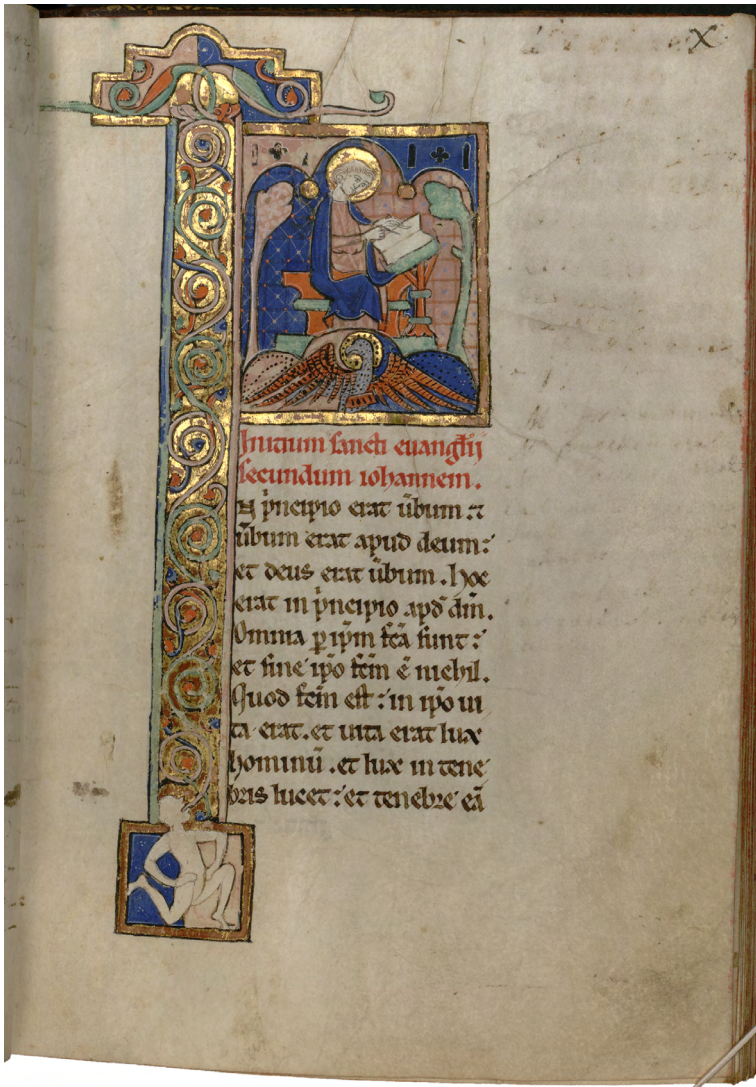 X
Initium sancti euangl̃ij
secundum iohannem.
N p̾ncipio erat ũbum :⁊
ũbum erat apud deum:
et deus erat ũbum. hoc
erat in p̾ncipio apd̾ dm̃.
Omnia ꝑ ip̃m fc̃a sunt:
et sine ip̃o fc̃m ẽ nichil.
Quod fc̃m est: in ip̃o ui
ta erat. et uita erat lux
hominũ. et lux in tene
bris lucet: et tenebre eã